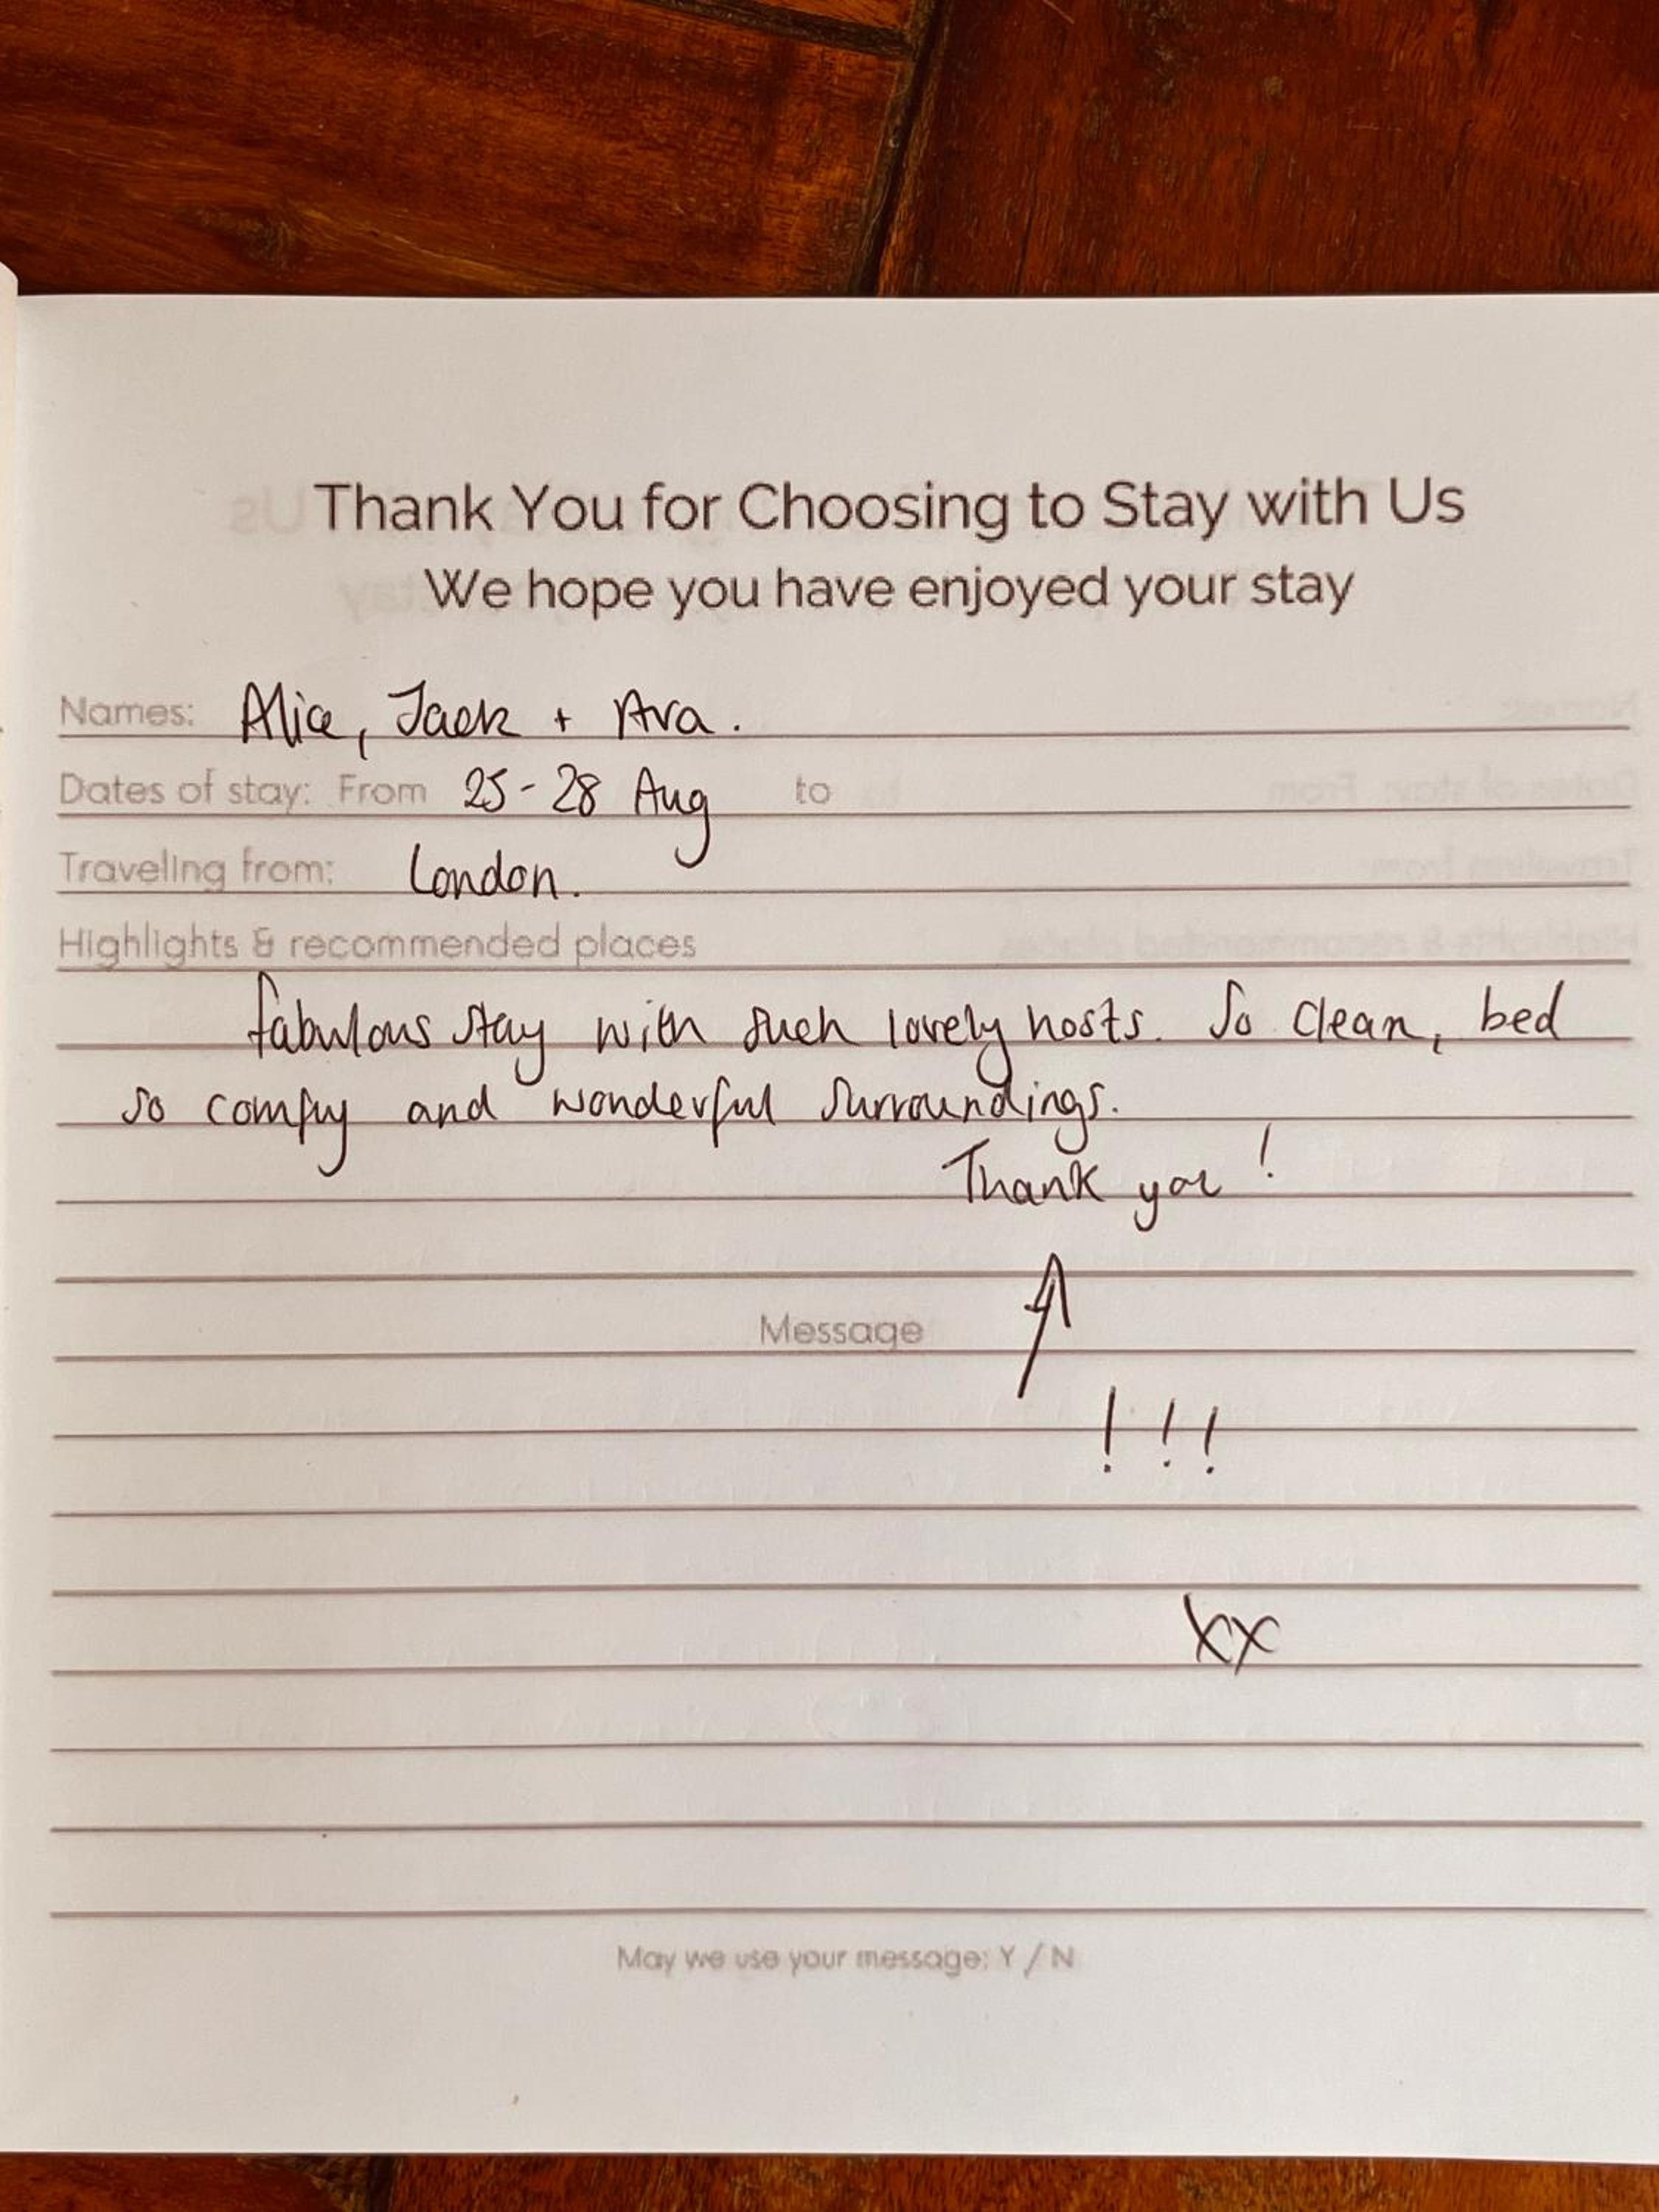 Thank You for Choosing to Stay with Us
We hope you have enjoyed your stay
Names: Alice, Jack + Ava.
Dates of stay: From 25-28 Aug to
Traveling from: London.
Highlights & recommended places
fabulous stay with such lovely hosts. So clean, bed
so comfy and wonderful surroundings.
Thank you!
Message
! ! !
xx
May we use your message: Y / N